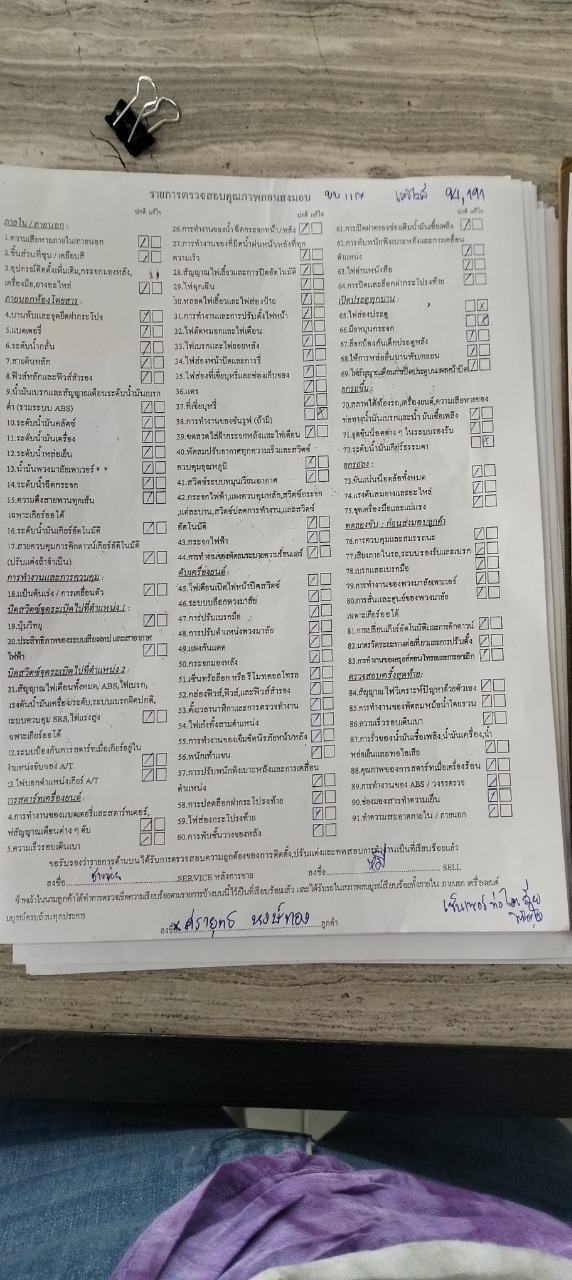 รายการตรวจสอบคุณภาพก่อนส่งมอบ
ปกติ แก้ไข
ภายใน / ภายนอก :
1.ความเสียหายภายใน/ภายนอก
2.ชิ้นส่วนที่ชุบ / เคลือบสี
3.อุปกรณ์ติดตั้งเพิ่มเติม,กระจกมองหลัง,
เครื่องมือ,ยางอะไหล่
ภายนอกห้องโดยสาร :
4.บานพับและชุดยึดฝากระโปรง
5.แบตเตอรี่
6.ระดับน้ำกลั่น
7.สายดินหลัก
8.ฟิวส์หลักและฟิวส์สำรอง
9.น้ำมันเบรกและสัญญาณเตือนระดับน้ำมันเบรก
ต่ำ (รวมระบบ ABS)
10.ระดับน้ำมันคลัตช์
11.ระดับน้ำมันเครื่อง
12.ระดับน้ำหล่อเย็น
13.น้ำมันพวงมาลัยเพาเวอร์
14.ระดับน้ำฉีดกระจก
15.ความตึงสายพานทุกเส้น
เฉพาะเกียร์ออโต้
16.ระดับน้ำมันเกียร์อัตโนมัติ
17.สายควบคุมการคิกดาวน์เกียร์อัติโนมัติ
(ปรับแต่งถ้าจำเป็น)
การทำงานและการควบคุม :
18.แป้นคันเร่ง / การเคลื่อนตัว
บิดสวิตช์จุดระเบิดไปที่ตำแหน่ง 1 :
19.ปุ่มวิทยุ
20.ประสิทธิภาพของระบบเสียงเทปและเสาอากาศ
ไฟฟ้า
บิดสวิตช์จุดระเบิดไปที่ตำแหน่ง 2 :
21.สัญญาณไฟเตือนทั้งหมด; ABS,ไฟเบรก,
แรงดันน้ำมันเครื่อง/ระดับ,ระบบเบรกผิดปกติ,
ระบบควบคุม SRS,ไฟแรงสูง
เฉพาะเกียร์ออโต้
22.ระบบป้องกันการสตาร์ทเมื่อเกียร์อยู่ใน
ตำแหน่งขับของ A/T
23.ไฟบอกตำแหน่งเกียร์ A/T
การสตาร์ทเครื่องยนต์ :
4.การทำงานของแบตเตอรี่และสตาร์ทเตอร์,
ฟสัญญาณเตือนต่าง ๆ ดับ
5.ความเร็วรอบเดินเบา
ปกติ แก้ไข
26.การทำงานของน้ำฉีดกระจกหน้า/หลัง
27.การทำงานของที่ปัดน้ำฝนหน้า/หลังที่ทุก
ความเร็ว
28.สัญญาณไฟเลี้ยวและการปิดอัตโนมัติ
29.ไฟฉุกเฉิน
30.หลอดไฟเลี้ยวและไฟส่องป้าย
31.การทำงานและการปรับตั้งไฟหน้า
32.ไฟตัดหมอกและไฟเตือน
33.ไฟเบรกและไฟถอยหลัง
34.ไฟส่องหน้าปัดและการหรี่
35.ไฟส่องที่เขี่ยบุหรี่และช่องเก็บของ
36.แตร
37.ที่เขี่ยบุหรี่
38.การทำงานของซันรูฟ (ถ้ามี)
39.ขดลวดไล่ฝ้ากระจกหลังและไฟเตือน
40.พัดลมปรับอากาศทุกความเร็วและสวิตช์
ควบคุมอุณหภูมิ
41.สวิตช์ระบบหมุนเวียนอากาศ
42.กระจกไฟฟ้า,แผงควบคุมหลัก,สวิตช์กระจก
,แต่ละบาน,สวิตช์ปลดการทำงาน,และสวิตช์
อัตโนมัติ
43.กระจกไฟฟ้า
44.การทำงานของพัดลมระบายความร้อนแอร์
ดับเครื่องยนต์ :
45.ไฟเตือนเปิดไฟหน้าปิดสวิตช์
46.ระบบบล็อกพวงมาลัย
47.การปรับเบรกมือ
48.การปรับตำแหน่งพวงมาลัย
49.แผงกันแดด
50.กระจกมองหลัง
51.เซ็นทรัลล็อก หรือ รีโมทคอลโทรล
52.กล่องฟิวส์,ฟิวส์,และฟิวส์สำรอง
53.ตั้งเวลานาฬิกาและการตรวจทำงาน
54.ไฟเก๋งทั้งสามตำแหน่ง
55.การทำงานของเข็มขัดนิรภัยหน้า/หลัง
56.พนักเท้าแขน
57.การปรับพนักพิงเบาะหลังและการเคลื่อน
ตำแหน่ง
58.การปลดล็อกฝากระโปรงท้าย
59.ไฟส่องกระโปรงท้าย
60.การพับชั้นวางของหลัง
ปกติ แก้ไข
61.การเปิดฝาครอบช่องเติมน้ำมันเชื้อเพลิง
62.การดับพนักพิงเบาะหลังและการเคลื่อน
ตำแหน่ง
63.ไฟอ่านหนังสือ
64.การปิดและล็อกฝากระโปรงท้าย
เปิดประตูทุกบาน :
65.ไฟส่องประตู
66.มือหมุนกระจก
67.ล็อกป้องกันเด็กประตูหลัง
68.ให้การหล่อลื่นบานพับ/กลอน
69.ไฟสัญญาณเตือนการปิดประตูบนแผงหน้าปัด
ยกรถขึ้น :
70.สภาพใต้ท้องรถ,เครื่องยนต์,ความเสียหายของ
ท่อทางน้ำมันเบรกและน้ำมันเชื้อเพลิง
71.จุดขันน็อตต่าง ๆ ในระบบรองรับ
72.ระดับน้ำมันเกียร์ธรรมดา
ยกรถลง :
73.ขันแน่นน็อตล้อทั้งหมด
74.แรงดันลมยางและอะไหล่
75.ชุดเครื่องมือและแม่แรง
ทดลองขับ : ก่อนส่งมอบลูกค้า
76.การควบคุมและสมรรถนะ
77.เสียงภายในรถ,ระบบรองรับและเบรก
78.เบรกและเบรกมือ
79.การทำงานของพวงมาลัยเพาเวอร์
80.การสั่นและศูนย์ของพวงมาลัย
เฉพาะเกียร์ออโต้
81.การเปลี่ยนเกียร์อัตโนมัติและการคิกดาวน์
82.มาตรวัดระยะทางต่อเที่ยวและการปรับตั้ง
83.การทำงานของครูสคอนโทรลและการยกเลิก
ตรวจสอบครั้งสุดท้าย:
84.สัญญาณไฟวิเคราะห์ปัญหาด้วยตัวเอง
85.การทำงานของพัดลมหม้อน้ำโดยรวม
86.ความเร็วรอบเดินเบา
87.การรั่วของน้ำมันเชื้อเพลิง,น้ำมันเครื่อง,น้ำ
หล่อเย็นและท่อไอเสีย
88.คุณภาพของการสตาร์ทเมื่อเครื่องร้อน
89.การทำงานของ ABS / วงจรตรวจ
90.ช่องมองสารทำความเย็น
91.ทำความสะอาดภายใน / ภายนอก
ขอรับรองว่ารายการด้านบนได้รับการตรวจสอบความถูกต้องของการติดตั้ง,ปรับแต่งและทดสอบการทำงานเป็นที่เรียบร้อยแล้ว
ลงชื่อ SERVICE หลังการขาย ลงชื่อ SELL
ข้าพเจ้าในนามลูกค้าได้ทำการตรวจเช็คความเรียบร้อยตามรายการข้างบนนี้ไว้เป็นที่เรียบร้อยแล้ว และได้รับรถในสภาพสมบูรณ์เรียบร้อยทั้งภายใน ภายนอก เครื่องยนต์
สมบูรณ์ครบถ้วนทุกประการ
ลงชื่อ ศรายุทธ หงษ์ทอง ลูกค้า